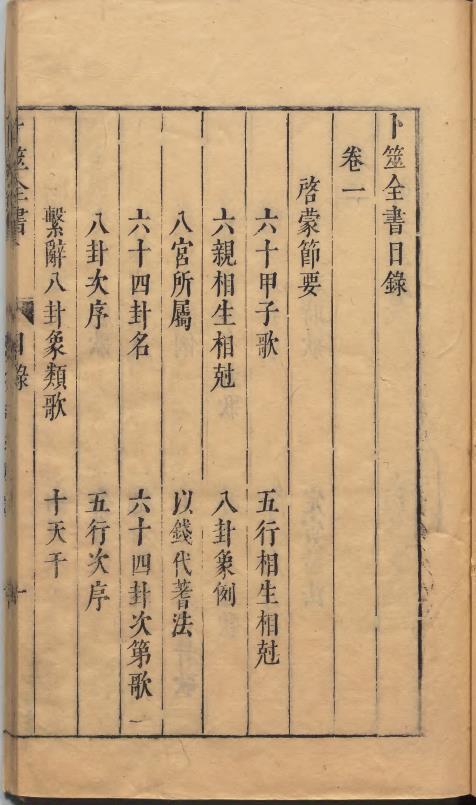 卜筮全書目錄
卷一
啓蒙節要
六十甲子歌 五行相生相尅
六親相生相尅 八卦象例
八宮所屬 以錢代蓍法
六十四卦名 六十四卦次第歌 一
八卦次序 五行次序
繫辭八卦象類歌 十天干
卜筮全書 目錄